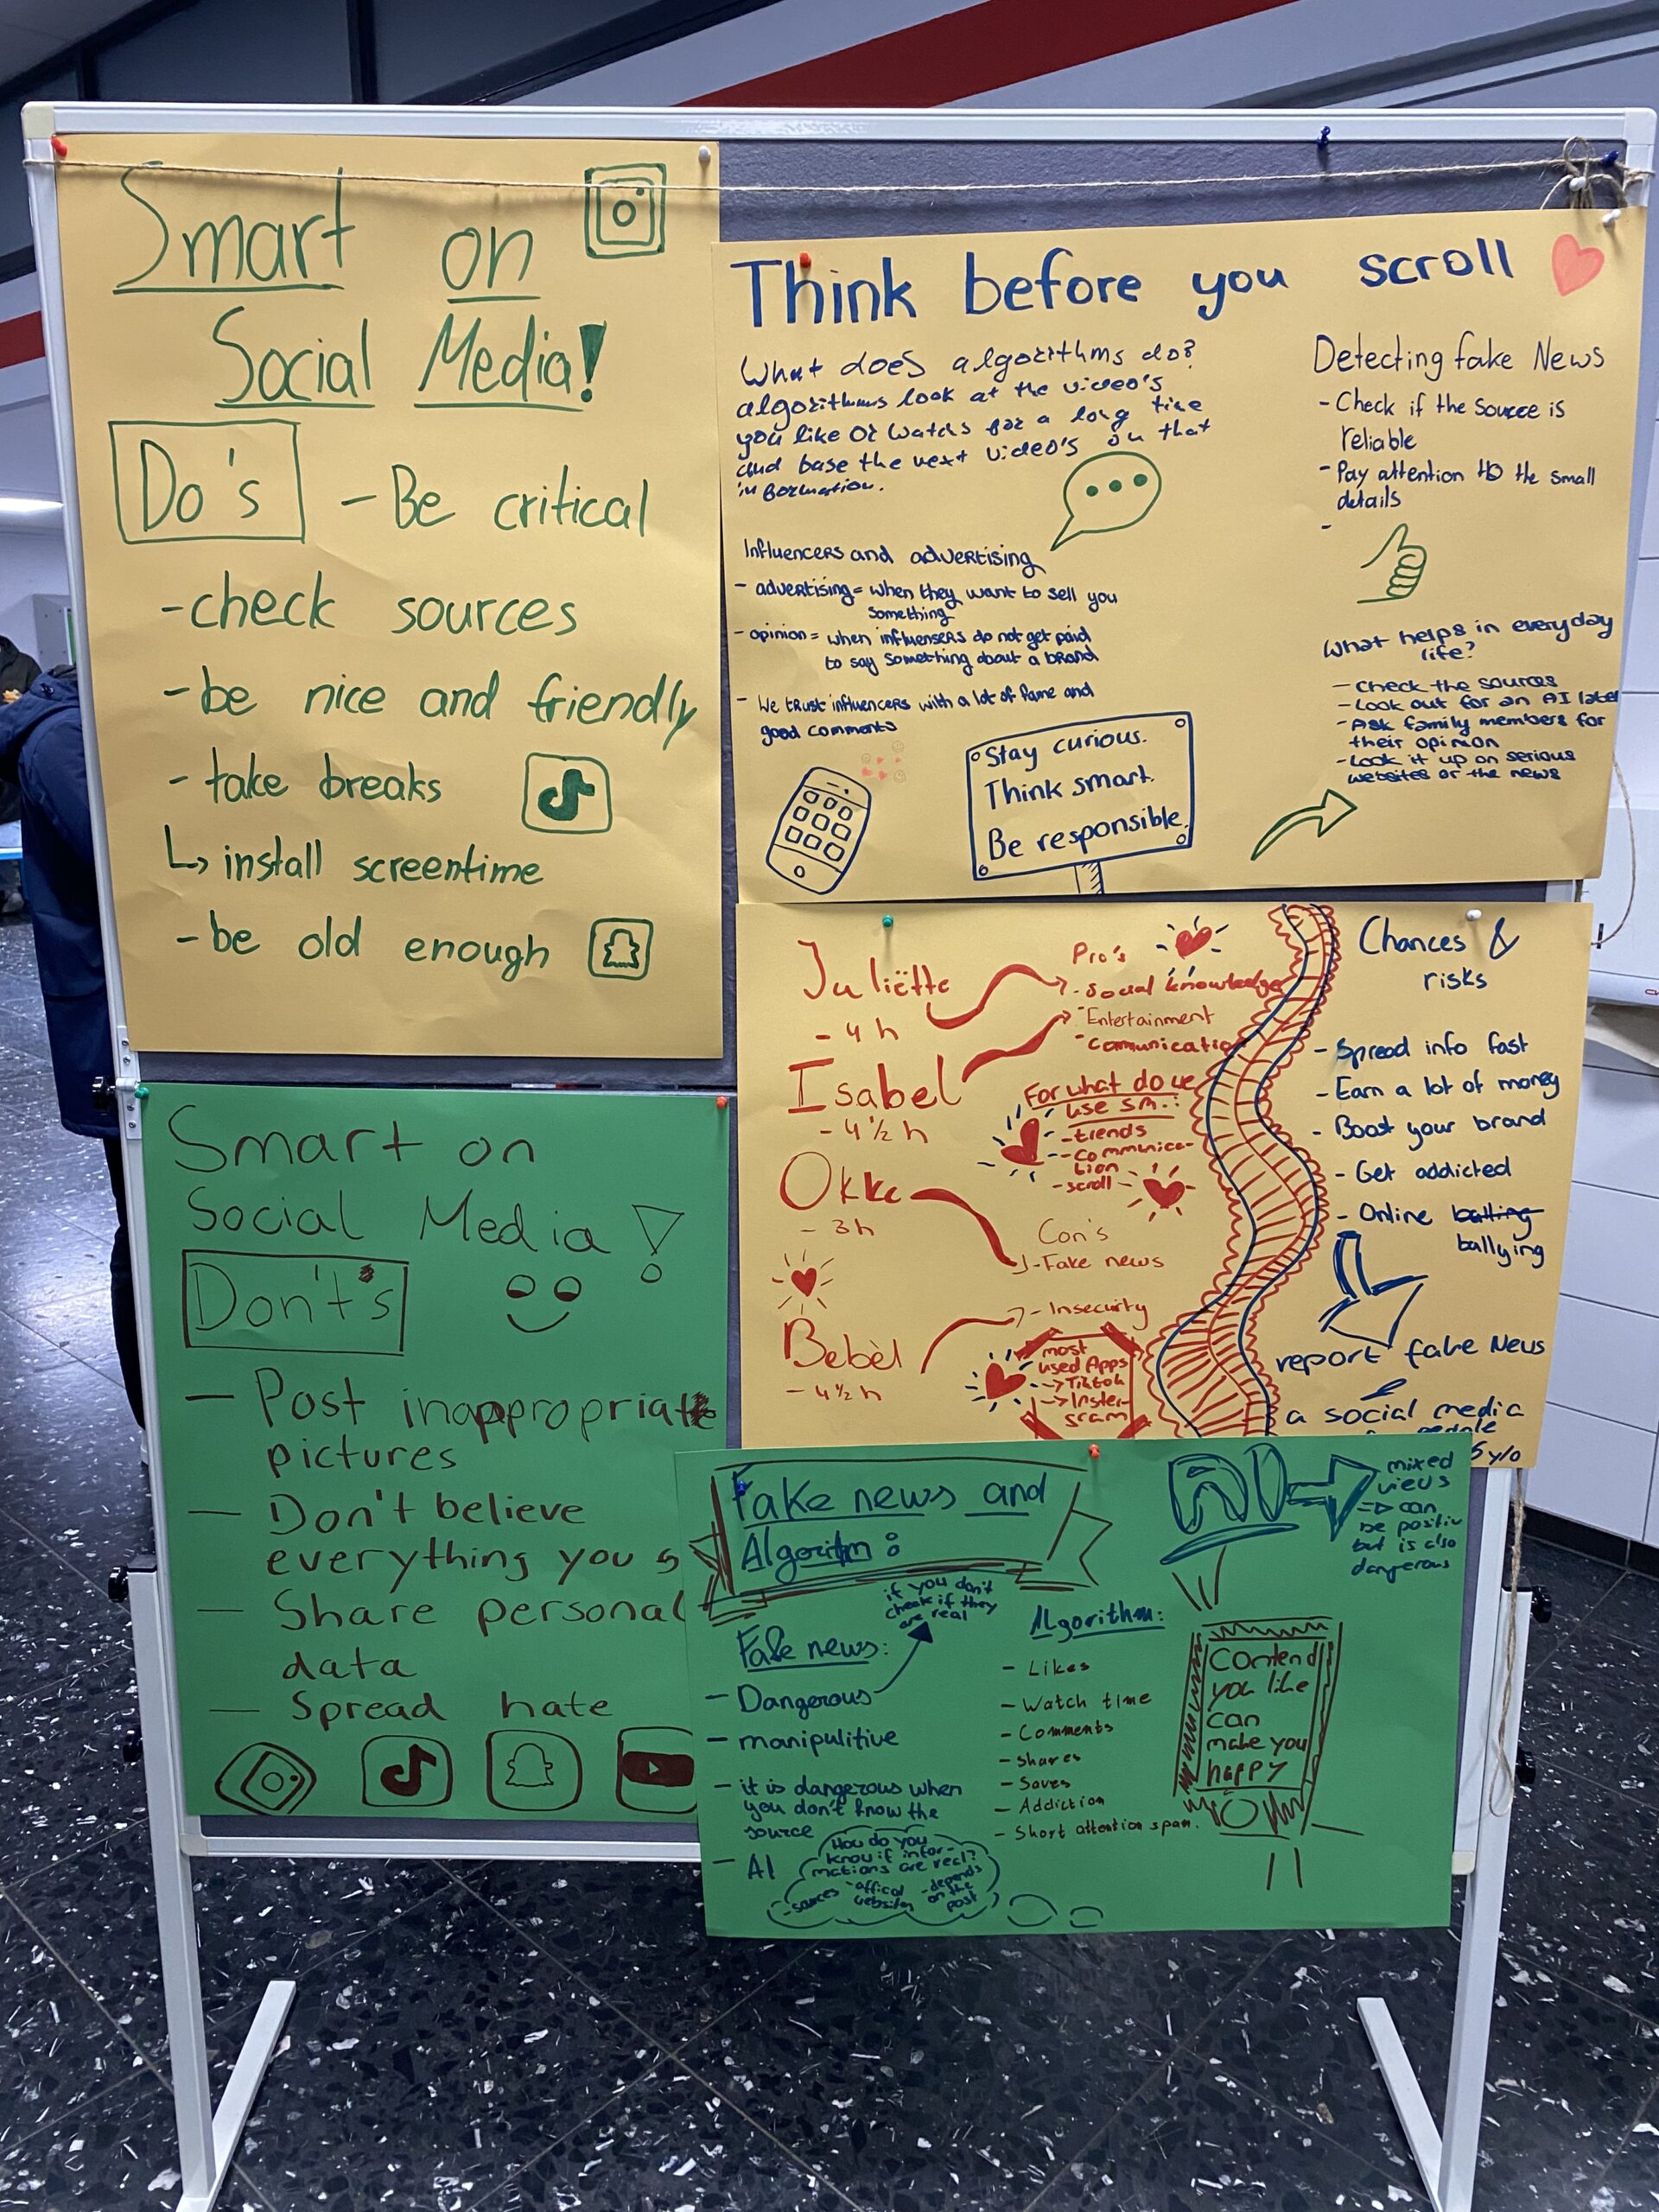 Smart on
Social Media!
Do's - Be critical
- check sources
- be nice and friendly
- take breaks
↳ install screentime
- be old enough
Think before you scroll
What does algorithms do?
algorithms look at the video's
you like or watch for a long time
and base the next video's on that
information.
Influencers and advertising
- advertising = when they want to sell you
something
- opinion = when influensers do not get paid
to say something about a brand
- We trust influencers with a lot of fame and
good comments
Stay curious.
Think smart.
Be responsible.
Detecting fake News
- Check if the source is
reliable
- Pay attention to the small
details
-
What helps in everyday
life?
- check the sources
- Look out for an AI label
- Ask family members for
their opinion
- Look it up on serious
websites or the news
Juliëtte
- 4 h
Isabel
- 4 ½ h
Okke
- 3h
Bebèl
- 4 ½ h
Pro's
- Social knowledge
- Entertainment
- comunication
For what do we
use sm.:
- trends
- communica-
tion
- scroll
Con's
- Fake news
- Insecurity
most
used Apps
-> Tiktok
-> Inster-
gram
Chances &
risks
- Spread info fast
- Earn a lot of money
- Boost your brand
- Get addicted
- Online
ballying
report fake News
a social media
people
5 y/o
Smart on
Social Media!
Don't's
- Post inappropriate
pictures
- Don't believe
everything you s
- Share personal
data
- Spread hate
Fake news and
Algoritm:
if you don't
check if they
are real
Fake news:
- Dangerous
- manipulitive
- it is dangerous when
you don't know the
source
- AI
How do you
know if infor-
mations are real?
- sources
- offical
websites
- depends
on the
post
Algorithm:
- Likes
- Watch time
- Comments
- Shares
- Saves
- Addiction
- Short attention span.
AI
mixed
views
=> can
be positiv
but is also
dangerous
Contend
you like
can
make you
happy